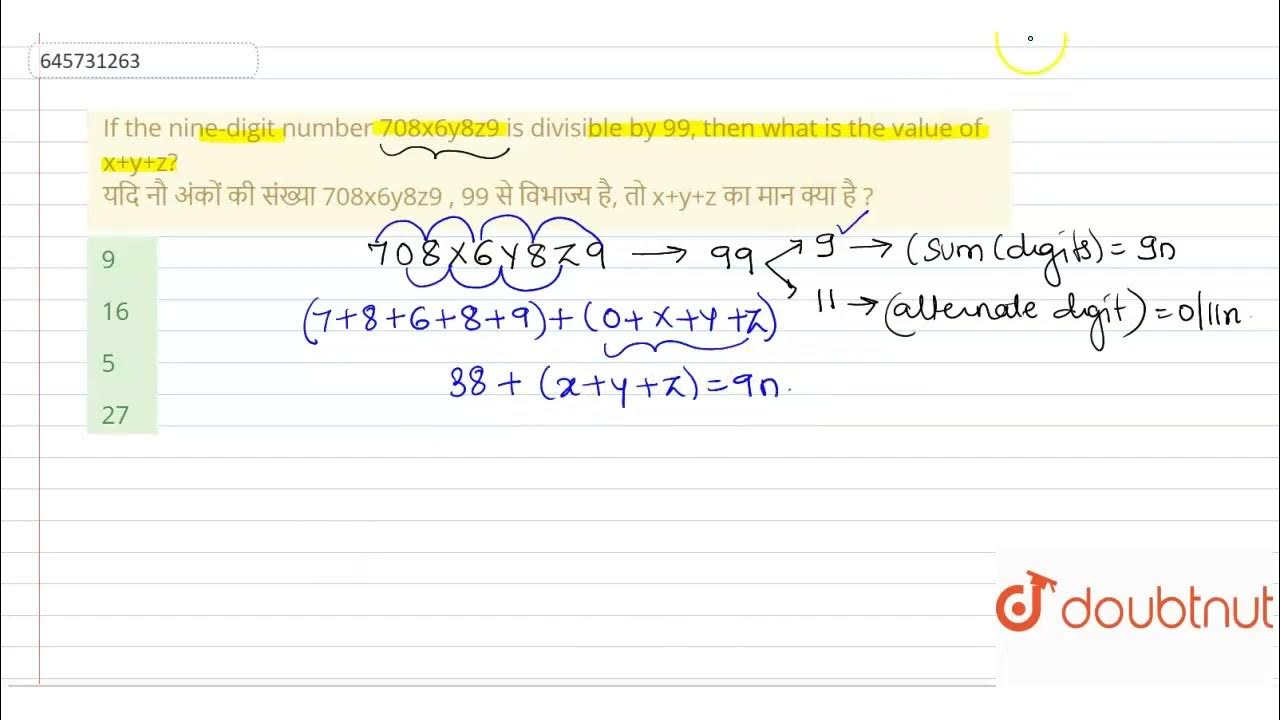 645731263
If the nine-digit number 708x6y8z9 is divisible by 99, then what is the value of
x+y+z?
यदि नौ अंकों की संख्या 708x6y8z9 , 99 से विभाज्य है, तो x+y+z का मान क्या है ?
9
16
5
27
708x6y8z9 → 99
9 → (sum (digits) = 9n
11 → (alternate digit) = 0/11n.
(7+8+6+8+9)+(0+x+y+z)
38 + (x+y+z) = 9n.
doubtnut